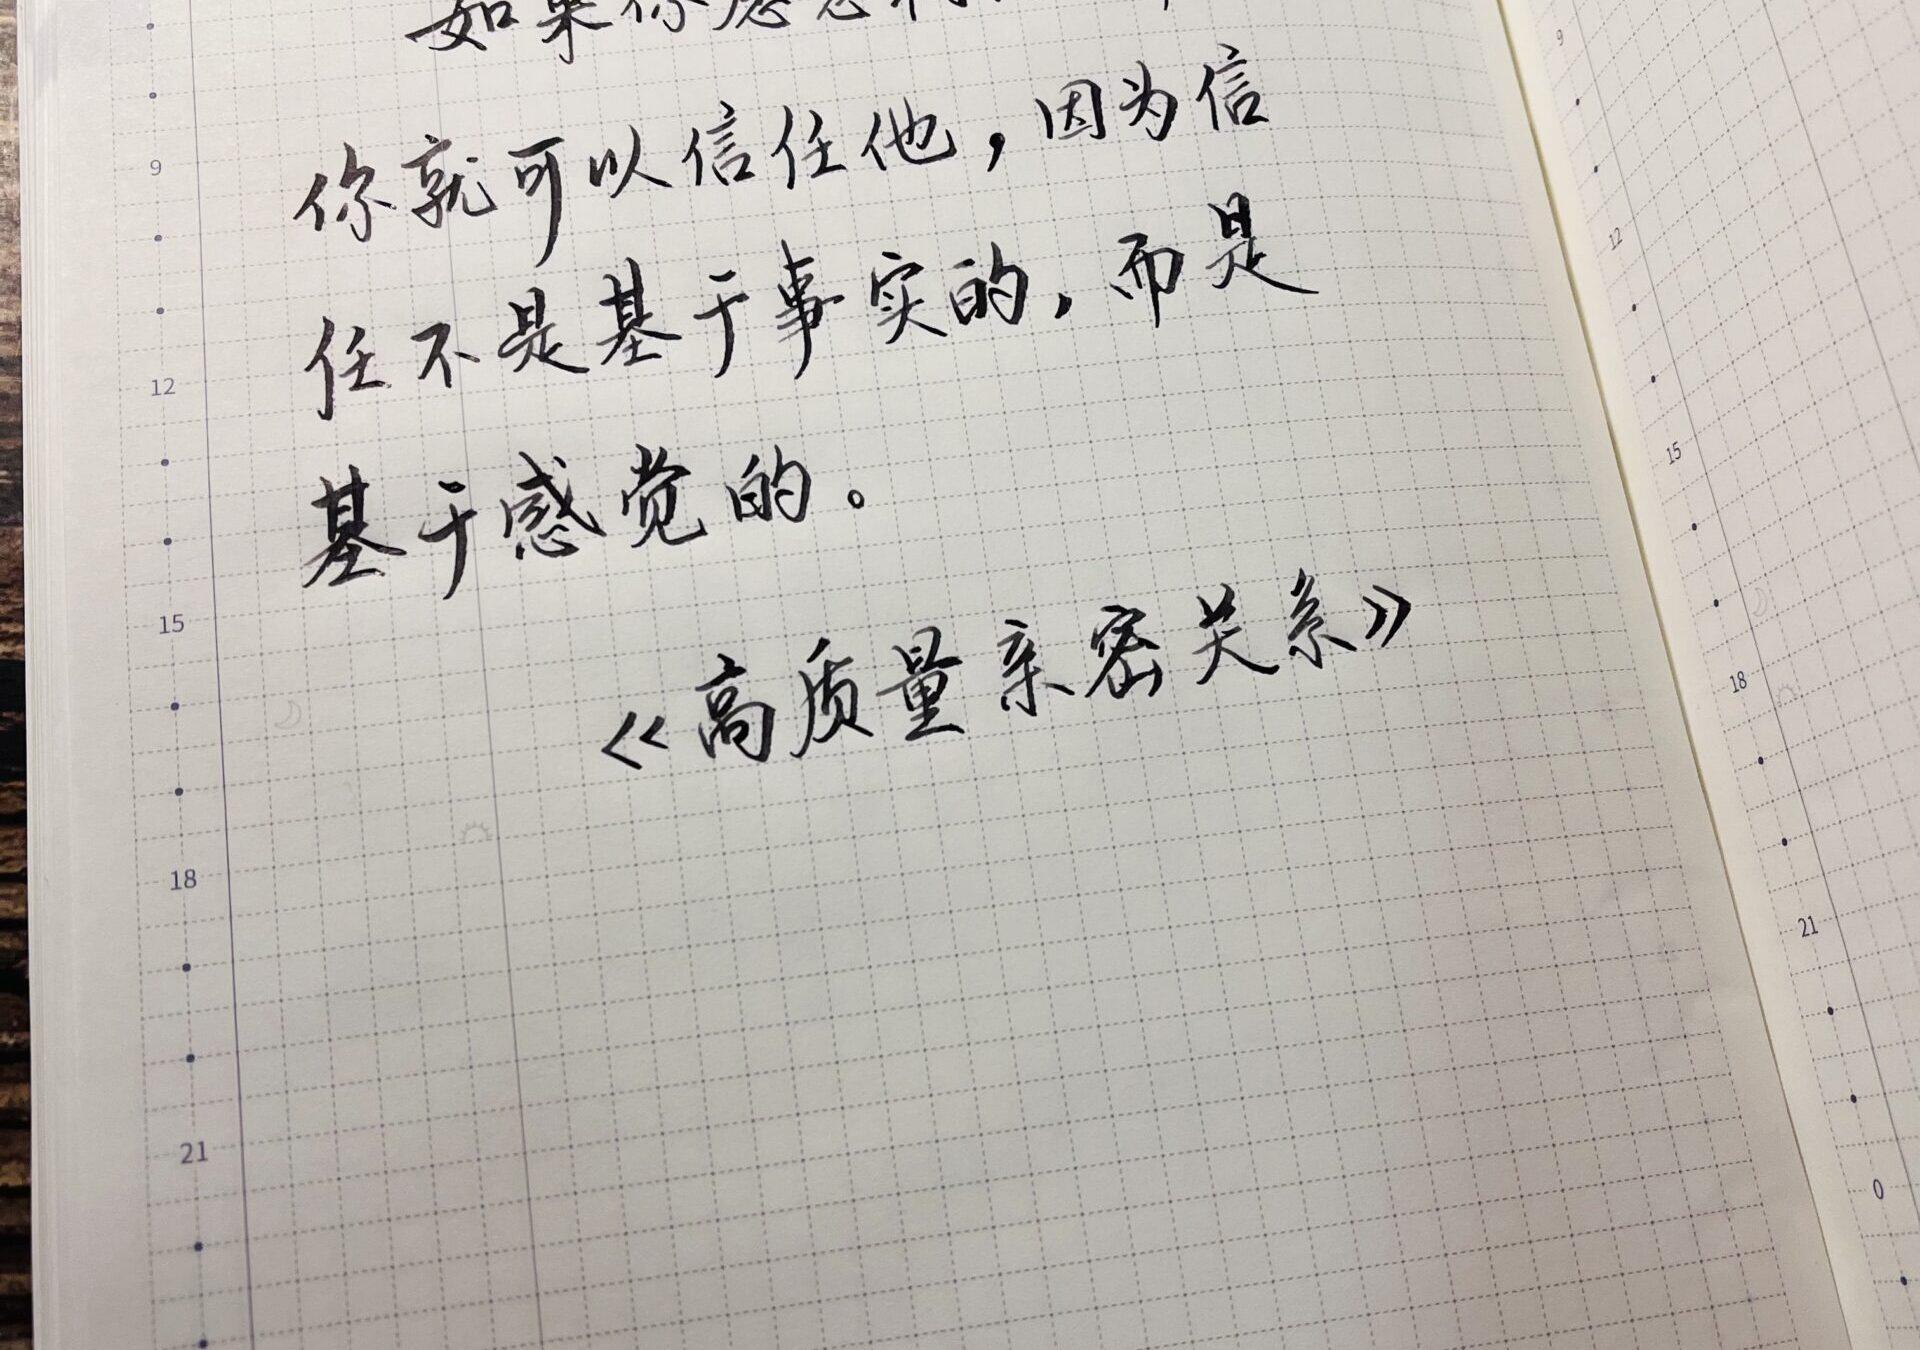 如果你愿意
你就可以信任他，因为信
任不是基于事实的，而是
基于感觉的。
《高质量亲密关系》
9
12
15
18
21
9
12
15
18
21
0